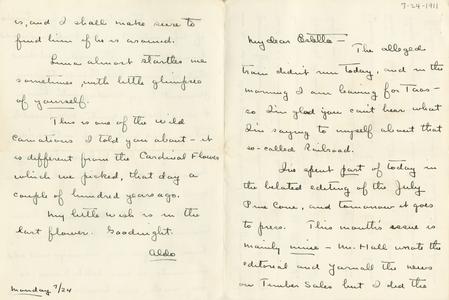 7-24-1911
My dear Estella -
The alleged
train didn't run today, and in the
morning I am leaving for Taos -
so I'm glad you can't hear what
I'm saying to myself about that
so-called Railroad.
I've spent part of today in
the belated editing of the July
Pine Cone, and tomorrow it goes
to press. This month's issue is
mainly mine - Mr. Hall wrote the
editorial and Yarnall the news
on Timber Sales but I did the
is, and I shall make sure to
find him if he is around.
Luna almost startles me
sometimes, with little glimpses
of yourself.
This is one of the wild
carnations I told you about - it
is different from the Cardinal Flower
which we picked, that day a
couple of hundred years ago.
My little wish is in the
last flower. Goodnight.
Aldo
Monday 7/24